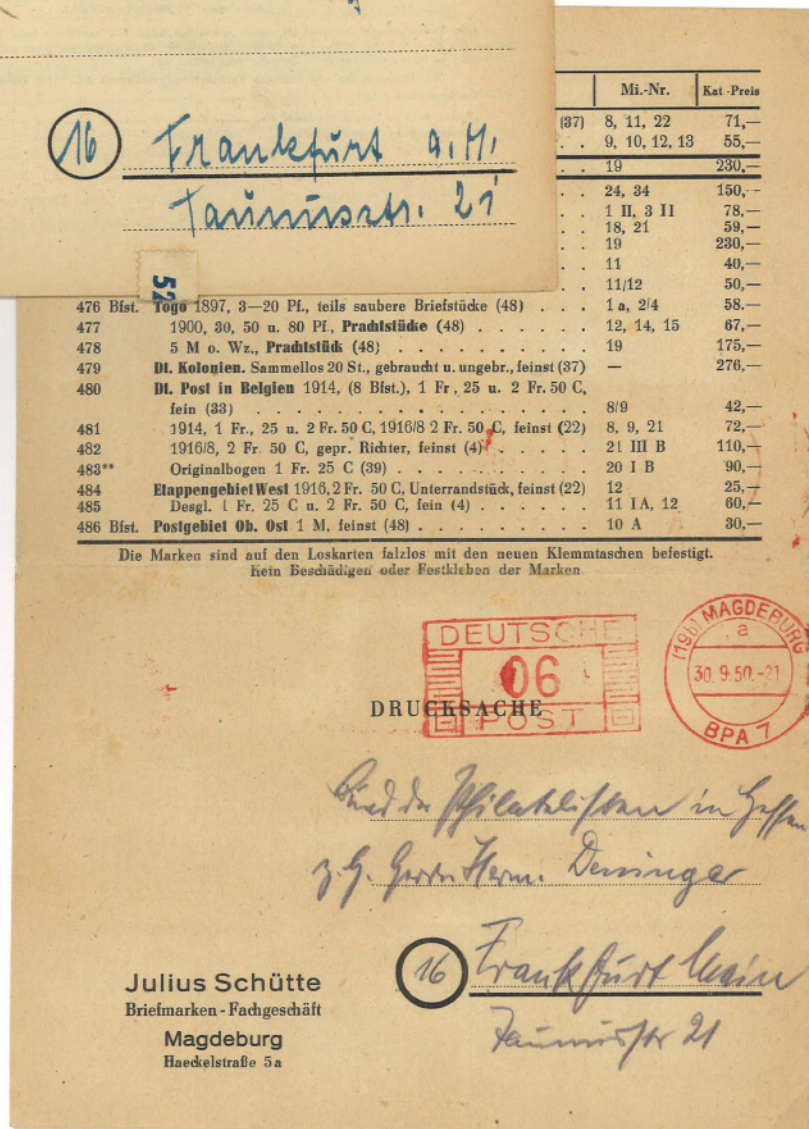 16 Frankfurt a. M.
Taunusstr. 21
52
Mi.-Nr. Kat-Preis
(37) 8, 11, 22 71,—
. . 9, 10, 12, 13 55,—
. . 19 230,—
. . 24, 34 150,—
. . 1 II, 3 II 78,—
. . 18, 21 59,—
. . 19 230,—
. . 11 40,—
. . 11/12 50,—
476 Bfst. Togo 1897, 3—20 Pf., teils saubere Briefstücke (48) . . . 1 a, 2/4 58.—
477 1900, 30, 50 u. 80 Pf., Prachtstücke (48) . . . . . . 12, 14, 15 67,—
478 5 M o. Wz., Prachtstück (48) . . . . . . . . . . 19 175,—
479 Dt. Kolonien. Sammellos 20 St., gebraucht u. ungebr., feinst (37) — 276,—
480 Dt. Post in Belgien 1914, (8 Bfst.), 1 Fr, 25 u. 2 Fr. 50 C,
fein (33) . . . . . . . . . . . . . . . . . . 8/9 42,—
481 1914, 1 Fr., 25 u. 2 Fr. 50 C, 1916/8 2 Fr. 50 C, feinst (22) 8, 9, 21 72,—
482 1916/8, 2 Fr. 50 C, gepr. Richter, feinst (4) . . . . . 21 III B 110,—
483** Originalbogen 1 Fr. 25 C (39) . . . . . . . . . . 20 I B 90,—
484 Etappengebiet West 1916, 2 Fr. 50 C, Unterrandstück, feinst (22) 12 25,—
485 Desgl. 1 Fr. 25 C u. 2 Fr. 50 C, fein (4) . . . . . . 11 IA, 12 60,—
486 Bfst. Postgebiet Ob. Ost 1 M, feinst (48) . . . . . . . . . 10 A 30,—
Die Marken sind auf den Loskarten falzlos mit den neuen Klemmtaschen befestigt.
Kein Beschädigen oder Festkleben der Marken
DEUTSCHE
06
POST
(19b) MAGDEBURG
a
30.9.50.-21
BPA 7
DRUCKSACHE
Bund der Philatelisten in Hessen
z. H. Herrn Herm. Deninger
16 Frankfurt Main
Taunusstr 21
Julius Schütte
Briefmarken-Fachgeschäft
Magdeburg
Haeckelstraße 5a